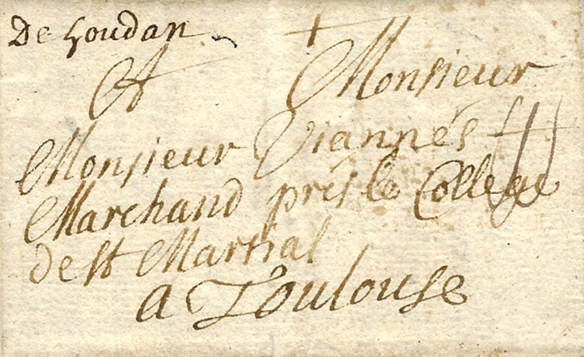 De houdan
+
A Monsieur
Monsieur Viannés
Marchand prés le College
de st Martial
a Toulouse